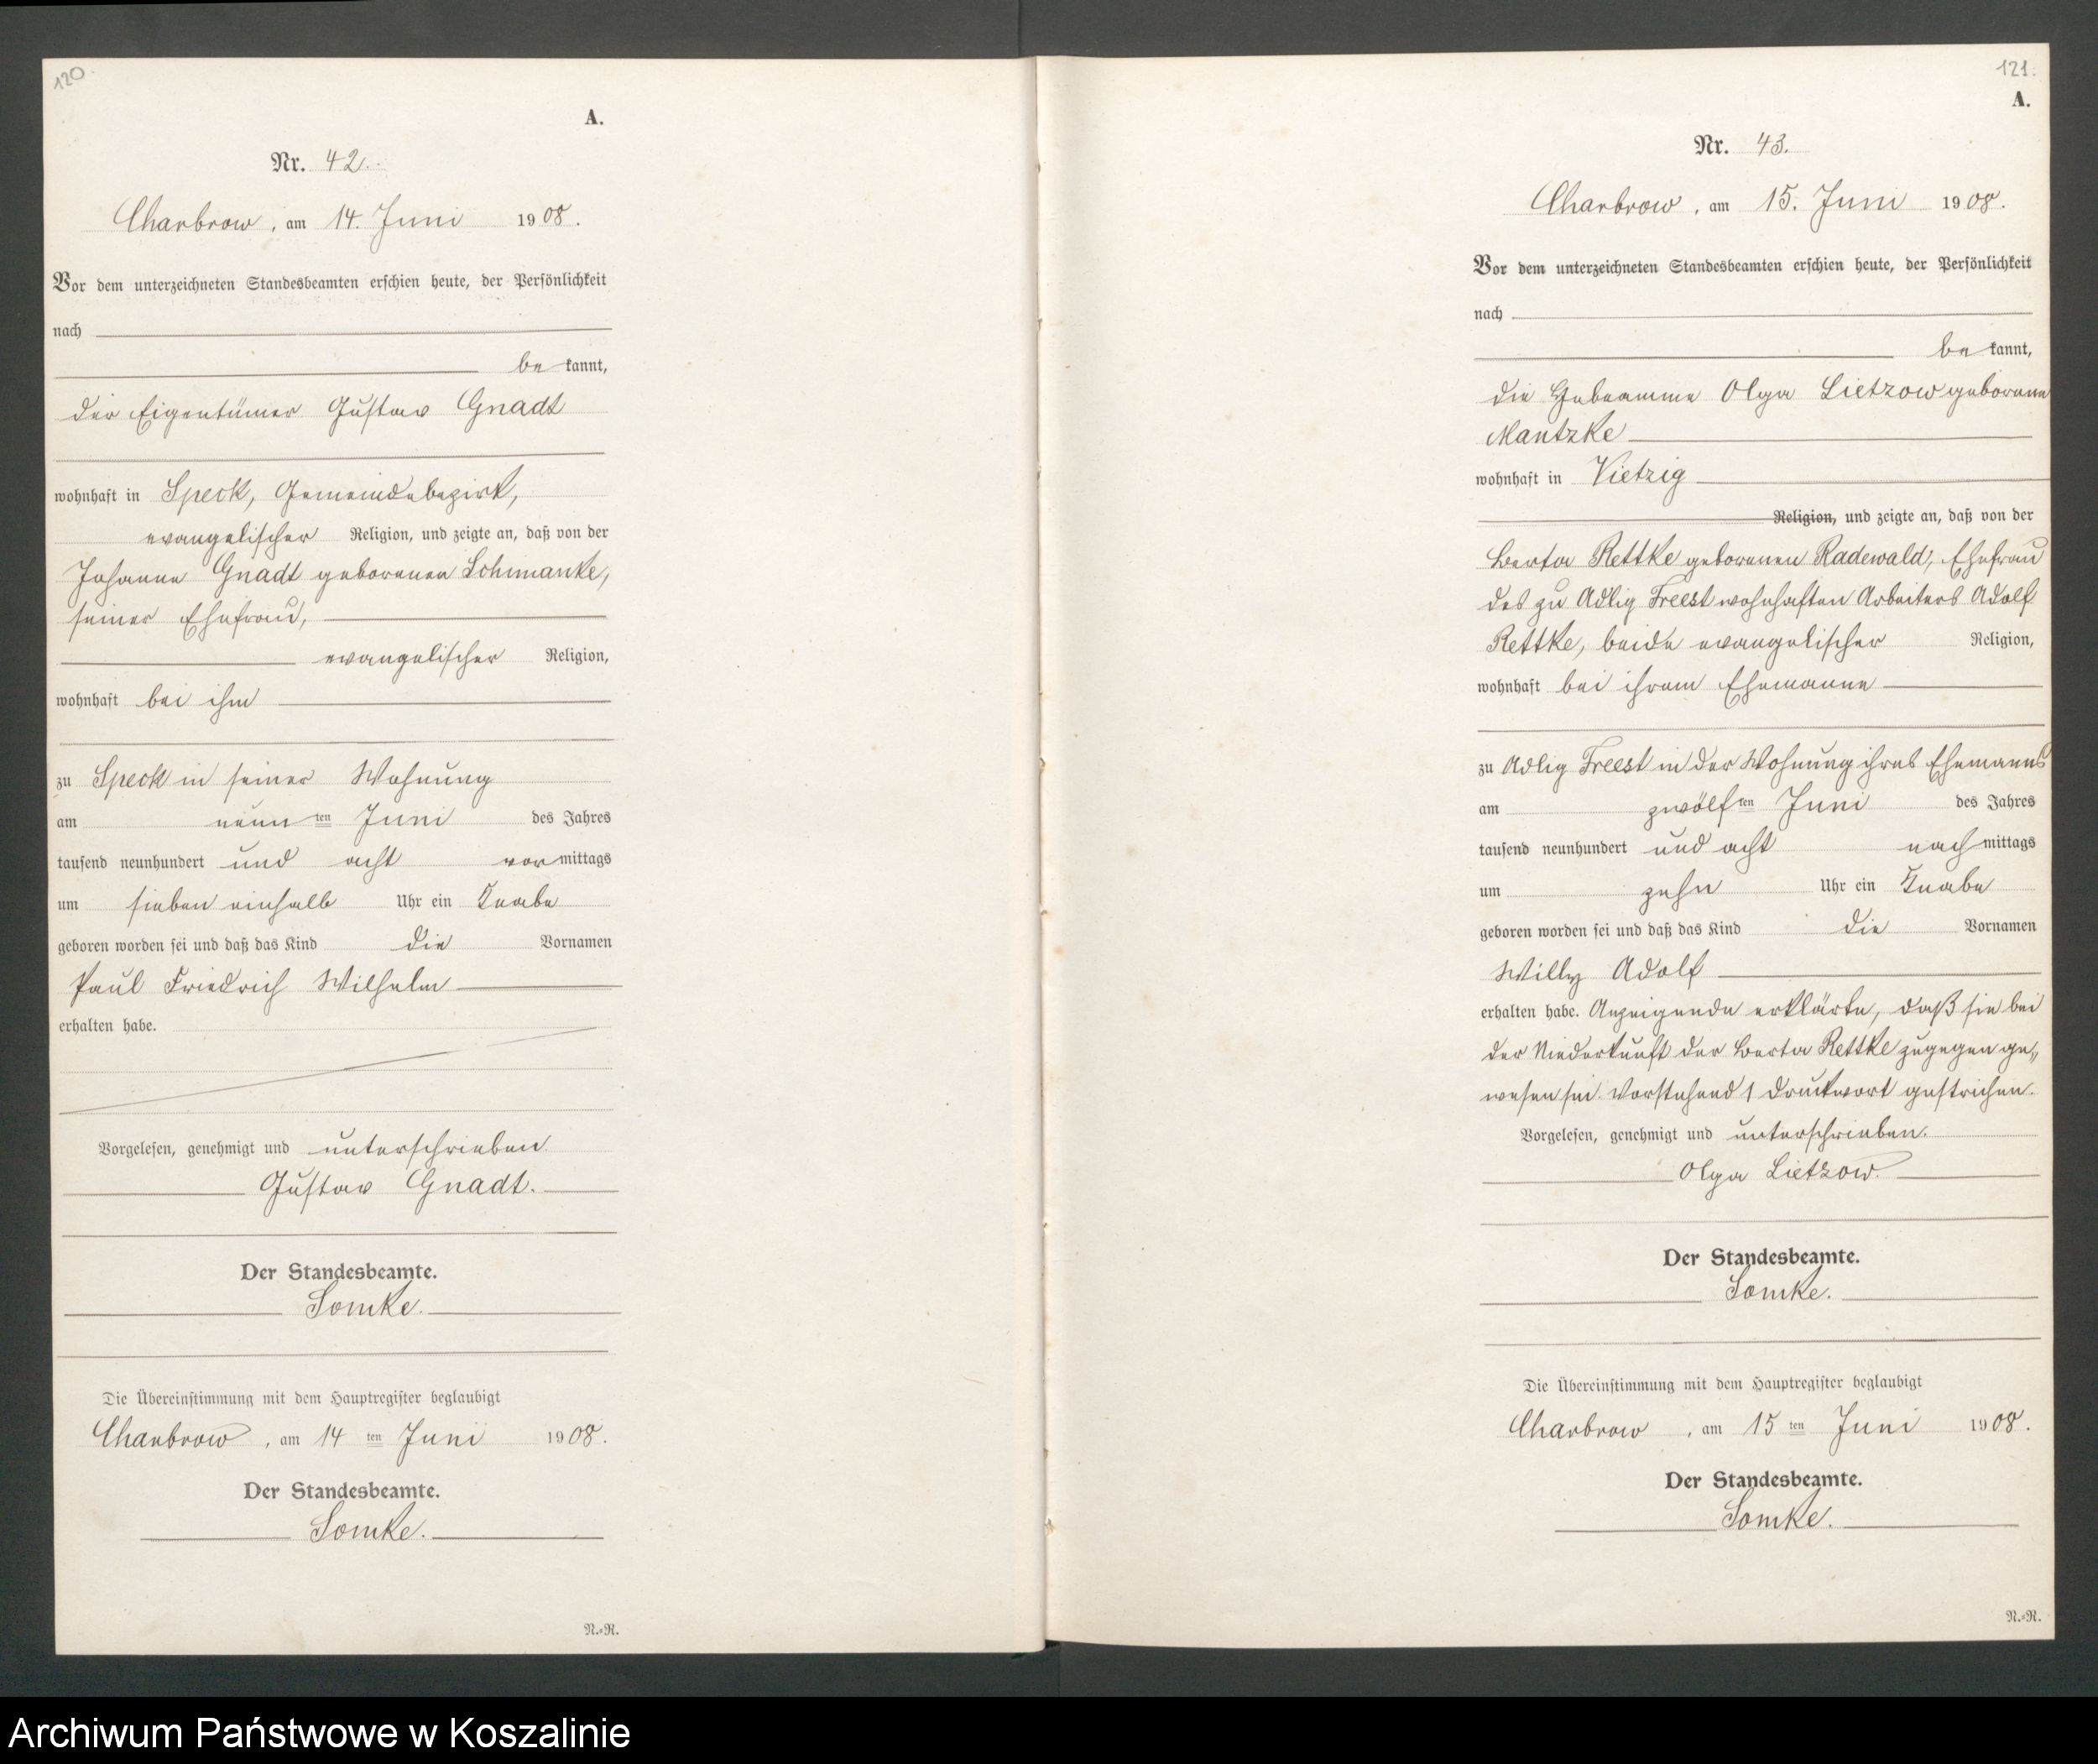 120.
A.
Nr. 42.
Charbrow, am 14. Juni 1908.
Vor dem unterzeichneten Standesbeamten erschien heute, der Persönlichkeit
nach
be kannt,
der Eigentümer Gustav Gnadt
wohnhaft in Speck, Gemeindebezirk,
evangelischer Religion, und zeigte an, daß von der
Johanne Gnadt geborenen Schimanke,
seiner Ehefrau,
evangelischer Religion,
wohnhaft bei ihm
zu Speck in seiner Wohnung
am neun ten Juni des Jahres
tausend neunhundert und acht vor mittags
um sieben einhalb Uhr ein Knabe
geboren worden sei und daß das Kind die Vornamen
Paul Friedrich Wilhelm
erhalten habe.
Vorgelesen, genehmigt und unterschrieben.
Gustav Gnadt.
Der Standesbeamte.
Somke.
Die Übereinstimmung mit dem Hauptregister beglaubigt
Charbrow, am 14 ten Juni 1908.
Der Standesbeamte.
Somke.
N.=R.
121.
A.
Nr. 43.
Charbrow, am 15. Juni 1908.
Vor dem unterzeichneten Standesbeamten erschien heute, der Persönlichkeit
nach
be kannt,
die Hebeamme Olga Lietzow geborene
Mantzke
wohnhaft in Vietzig
Religion, und zeigte an, daß von der
Berta Rettke geborenen Radewald, Ehefrau
des zu Adlig Freest wohnhaften Arbeiters Adolf
Rettke, beide evangelischer Religion,
wohnhaft bei ihrem Ehemanne
zu Adlig Freest in der Wohnung ihres Ehemanns
am zwölf ten Juni des Jahres
tausend neunhundert und acht nach mittags
um zehn Uhr ein Knabe
geboren worden sei und daß das Kind die Vornamen
Willy Adolf
erhalten habe. Anzeigende erklärte, daß sie bei
der Niederkunft der Berta Rettke zugegen ge„
wesen sei. Vorstehend 1 Druckwort gestrichen.
Vorgelesen, genehmigt und unterschrieben.
Olga Lietzow.
Der Standesbeamte.
Somke.
Die Übereinstimmung mit dem Hauptregister beglaubigt
Charbrow, am 15 ten Juni 1908.
Der Standesbeamte.
Somke.
N.=R.
Archiwum Państwowe w Koszalinie